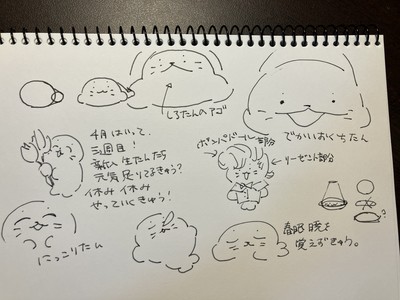 しろたんのアゴ
でかいおくちたん
4月はいって、
三週目！
新人生たんたち
元気足りてるきゅう？
休み休み
やっていくきゅう！
ポンパドール部分
リーゼント部分
?
にっこりたん
春眠暁を
覚えずきゅう。